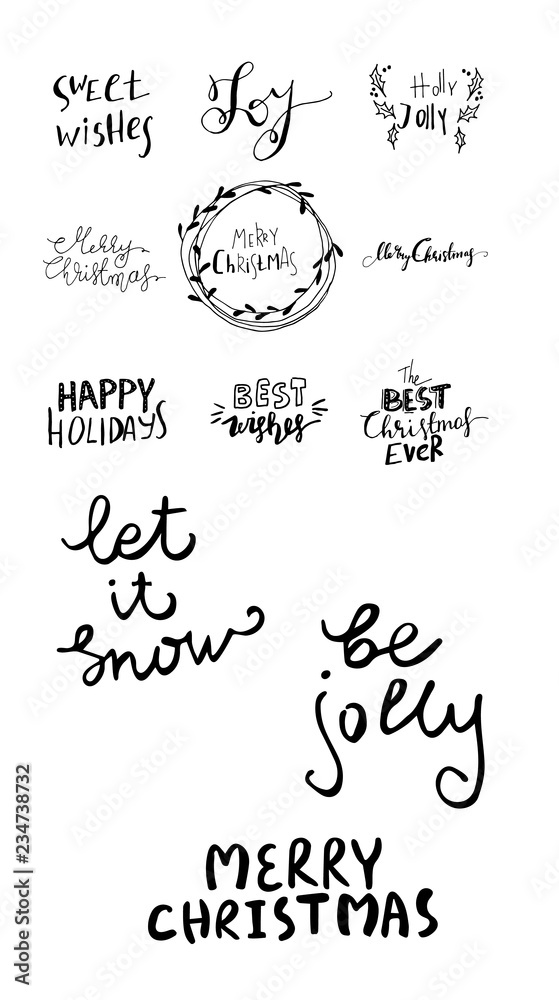 Sweet
wishes
Joy
Holly
Jolly
Merry
Christmas
MERRY
CHRISTMAS
Merry Christmas
HAPPY
HOLIDAYS
BEST
wishes
The
BEST
Christmas
EVER
let
it
snow
be
jolly
MERRY
CHRISTMAS
Adobe Stock | #234738732